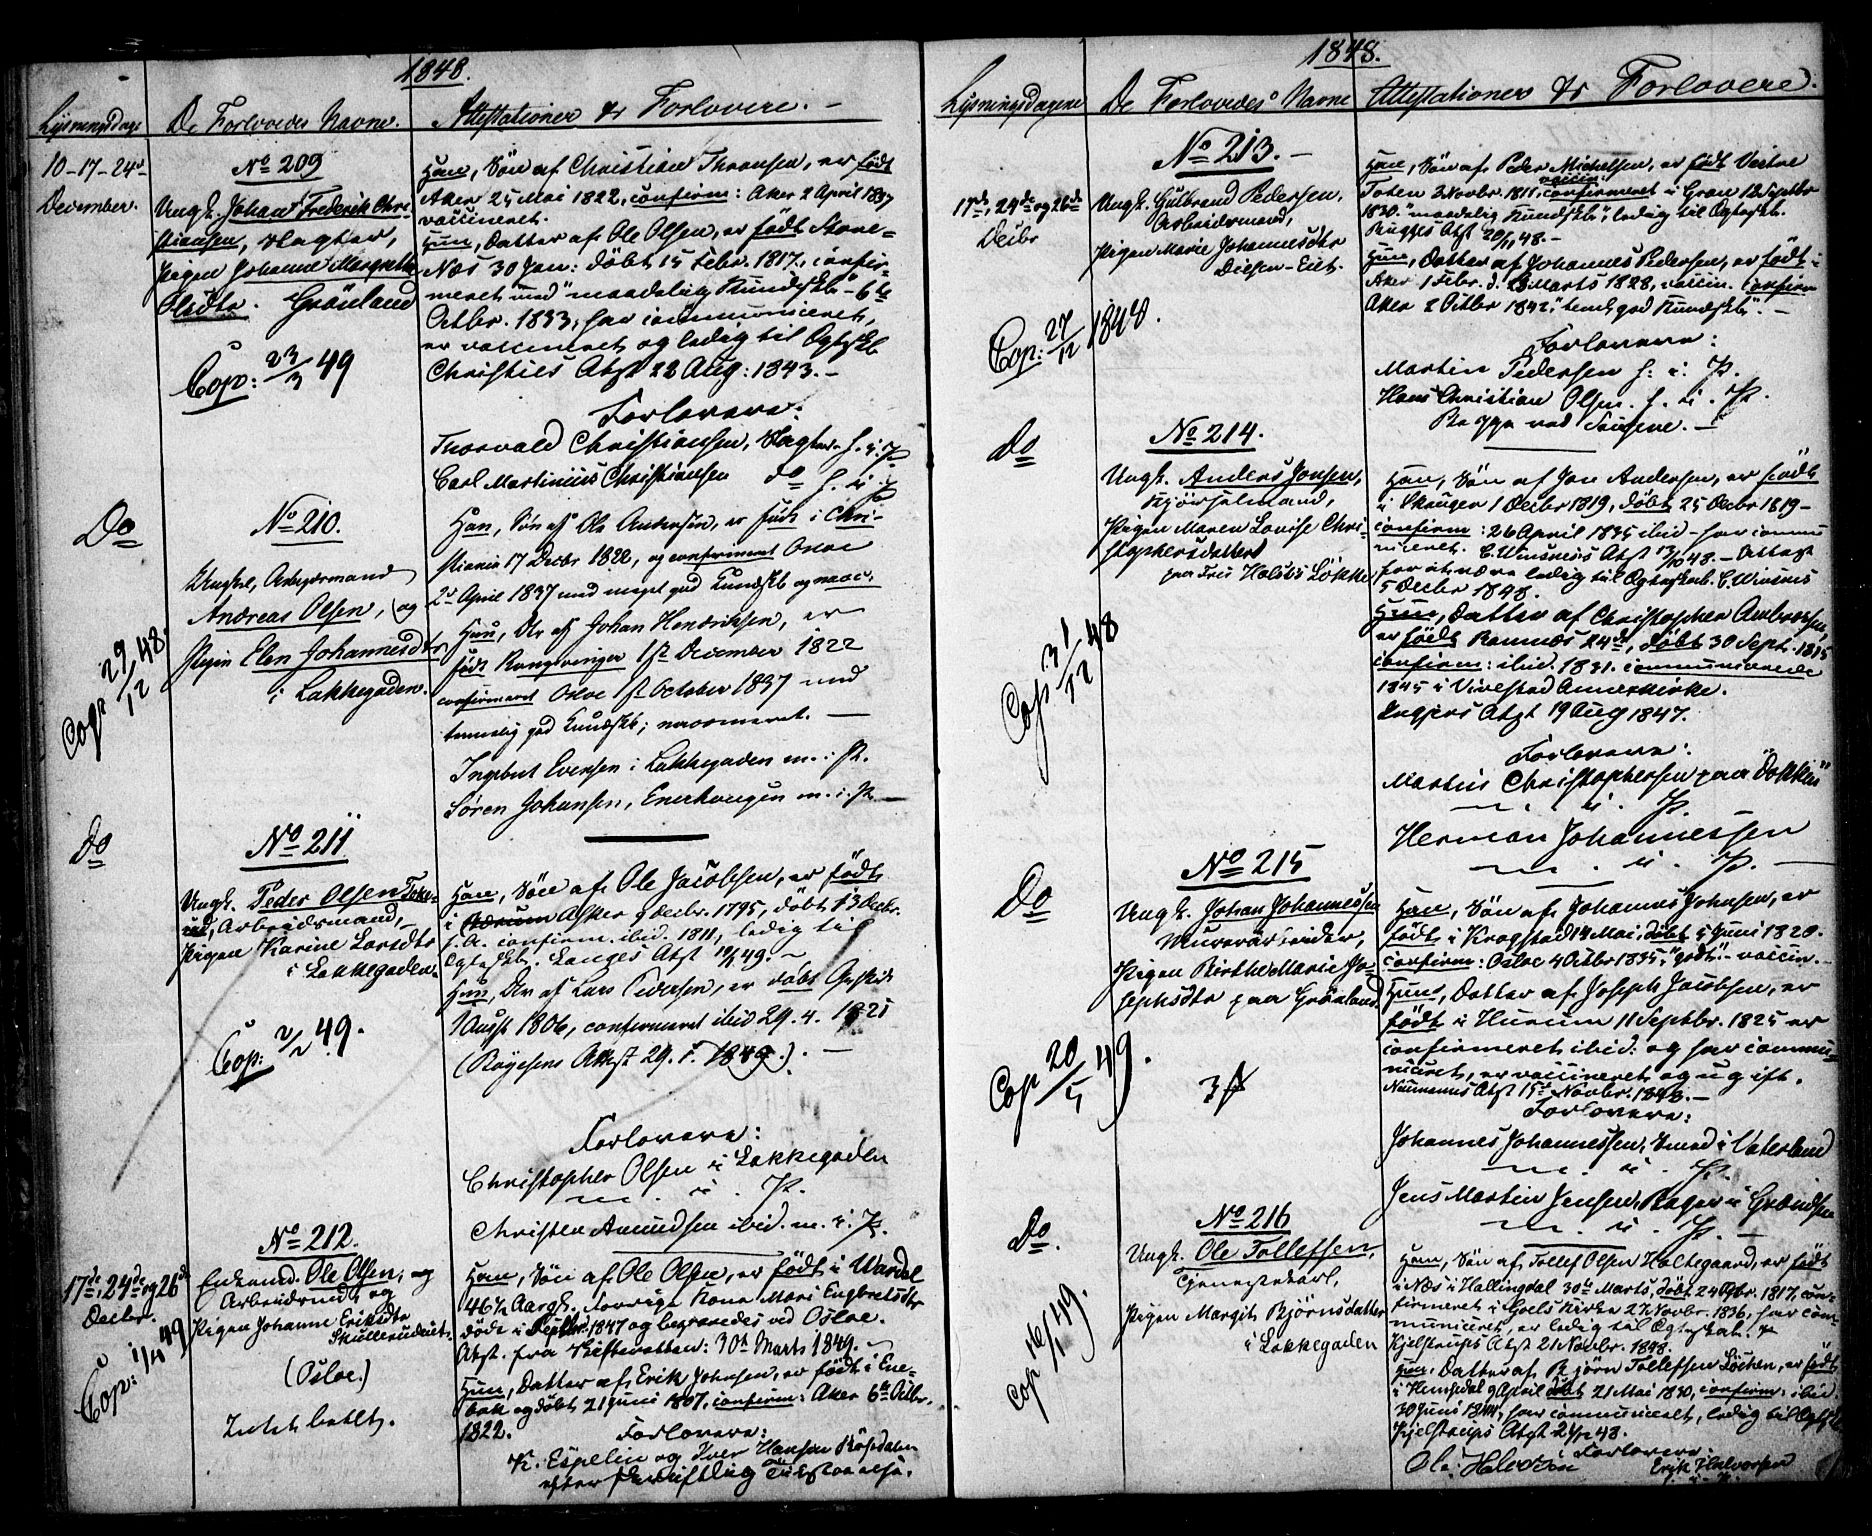 1848.
Lysningsdage
De Forlovedes Navne.
Attestationer & Forlovere. –
10–17–24de
December.
No 209
Ungk. Johan Frederik Chri-
stiansen, Slagter,
Pigen Johanne Margrethe
Olsdtr. Grönland
Cop: 23/3 49
Han, Sön af Christian Thoensen, er födt
Aker 25 Mai 1822, confirm: Aker 2 April 1837
vaccineret.
Hun, Datter af Ole Olsen, er födt
Næs 30 Jan: döbt 15 Febr. 1817, confir-
meret med "maadelig Kundskb" – 6te
Octbr. 1833, har communiceret,
er vaccineret og ledig til Ægteskb
Christies Atst 22 Aug: 1843. –
Forlovere:
Thorvald Christiansen, Slagter h. i. P.
Carl Martinius Christiansen do h. i. P.
Do
No 210.
Ungkl, Arbejdsmand
Andreas Olsen, og
Pigen Elen Johannesdtr
i Lakkegaden.
Cop 29/12 48.
Han, Søn af Ole Andersen, er født i Chri-
stiania 17 Decbr 1822, og confirmeret Osloe
2den April 1837 med meget god Kundskb og vacc.
Hun, Dtr af Johan Hendriksen, er
født Kongsvinger 1st December 1822
confirmeret Osloe 1st October 1837 med
temmelig god Kundskb; vaccineret. —
Ingebret Evensen i Lakkegaden m. i. P.
Søren Johansen, Enerhaugen m. i. P. —
Do
No 211
Ungk. Peder Olsen
Arbeidsmand,
Pigen Karine Larsdtr
i Lakkegaden.
Cop: 2/2 49.
Han, Sön af Ole Jacobsen, er födt
i Asker 9 Decbr. 1795, döbt 13 Decbr.
s. A. confirm. ibid. 1811, ledig til
Ægteskb. Langes Atst 10/1 49. –
Hun, Dtr af Lars Pedersen, er døbt
1 August 1806, confirmeret ibid 29. 4. 1821
(Röyesens Attest 29. 1. 1849.). –
Forlovere:
Christopher Olsen i Lakkegaden
m. i. P.
Christen Amundsen ibid. m. i. P.
17de, 24de og 26de
Decbr.
No 212.
Enkemd. Ole Olsen, og
Arbeidsmd, og
Pigen Johanne Eriksdtr
Skullerudeiet.
(Osloe.)
Intet betlt.
Cop: 1/4 49
Han, Sön af Ole Olsen, er födt i Wardal
46½ Aargl. Forrige Kone Mari Engbretsdtr
døde i Septbr. 1847 og begravedes ved Osloe.
Atst. fra Skifteretten: 30te Marts 1849. –
Hun, Datter af Erik Johnsen, er födt i Ene-
bak og döbt 21 Juni 1807, confirm: Aker 6te Octbr.
1822.
Forlovere:
K. Espelin og Iver Hansen Rösdalen
efter skriftlig Tilstaaelse.
1848.
Lysningsdagene
De Forlovedes Navne
Attestationer & Forlovere.
17de, 24de og 26de
Decbr
No 213. –
Ungk. Gulbrand Pedersen,
Arbeidsmand,
Pigen Marie Johannesdtr
Diesen-Eiet.
Cop: 27/12 1848.
Han, Sön af Peder Michelsen, er födt Vestre
Toten 3 Novbr. 1811, vaccin. confirmeret i Gran 12 Septbr
1830. "maadelig Kundskb", ledig til Ægteskb.
Bugges Atst 20/11 48. –
Hun, Datter af Johannes Pedersen, er födt i
Aker 1 Febr. d. 23 Marts 1828, vaccin. confirm
Aker 2 Octbr 1842, "teml. god Kundskb". –
Forlovere:
Martin Pedersen h. i. P.
Hans Christian Olsen. h. i. P.
Begge ved
Do
No 214.
Ungk. Anders Jonsen,
Kjörselmand,
Pigen Maren Lovise Chri-
stophersdatter
paa Løkke
Cop 31/12 48
Han, Sön af Jon Andersen, er födt
i Skauger 1 Decbr 1819, döbt 25 Decbr 1819 –
confirm: 26 April 1835 ibid – har commu-
niceret. C. Winsnes's Atst 13/10 48 – Attest
for at være ledig til Ægteskab. C. Winsnes
5 Decbr 1848.
Hun, Datter af Christopher Ambrosen,
er födt Ramnes 24de, döbt 30 Sept. 1815
confirm: ibid. 1831. communicerede
1845 i Vivestad Annexkirke.
Atst 19 Aug 1847.
Forlovere:
Martin Christophersen paa "Dökken"
m. i. P.
Herman Johannessen
m. i. P.
Do
No 215
Ungk. Johan Johannessen
Murarbeider,
Pigen Birthe Marie Jo-
sephsdtr paa Grönland
Cop 20/5 49.
Han, Sön af Johannes Johnsen, er
födt i Krogstad 14 Mai, döbt 5 Juni 1820.
confirm: Osloe 4 Octbr 1835, "godt" – vaccin. –
Hun, Datter af Joseph Jacobsen, er
födt i Hurum 11 Septbr. 1825 er
confirmeret ibid: og har commu-
niceret, er vaccineret og ugift.
Neumanns Atst 15de Novbr. 1848. –
Forlovere:
Johannes Johannessen, Smed i Vaterland
m. i. P.
Jens Martin Jensen, Bager i Grændsen
m. i. P.
Do.
No 216
Ungk. Ole Tollefsen,
Tjenestekarl,
Pigen Margit Björnsdatter
i Lakkegaden
Cop 16/1 49.
Han, Sön af Tollef Olsen Haltegaard, er födt
i Næs i Hallingdal 30te Marts, döbt 24 1817, con-
firmeret i Goels Kirke 27 Novbr. 1836, har com-
municeret, er ledig til Ægteskab.
Kjelstrups Atst 21 Novbr. 1848.
Hun, Datter af Björn Tollefsen Löchen, er födt
i Hemsedal 9 April döbt 21 Mai 1820, confirm: ibid.
30 Juni 18, har communiceret, ledig til Ægtsk
Kjelstrups Atst 2/12 48.
Forlovere:
Ole Halvorsen
Erik Halvorsen
m. i. P.